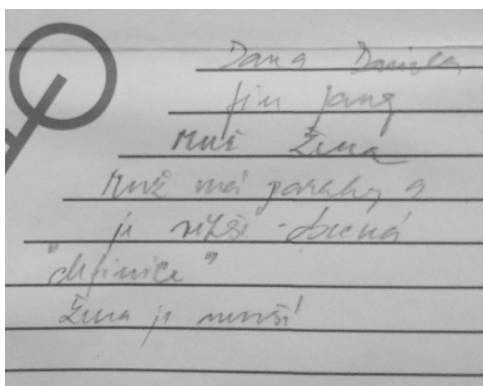 Dana Daniela
jin jang
Muž Žena
Muž má paraky a
je vyšší - obecná
"definice"
Žena je menší